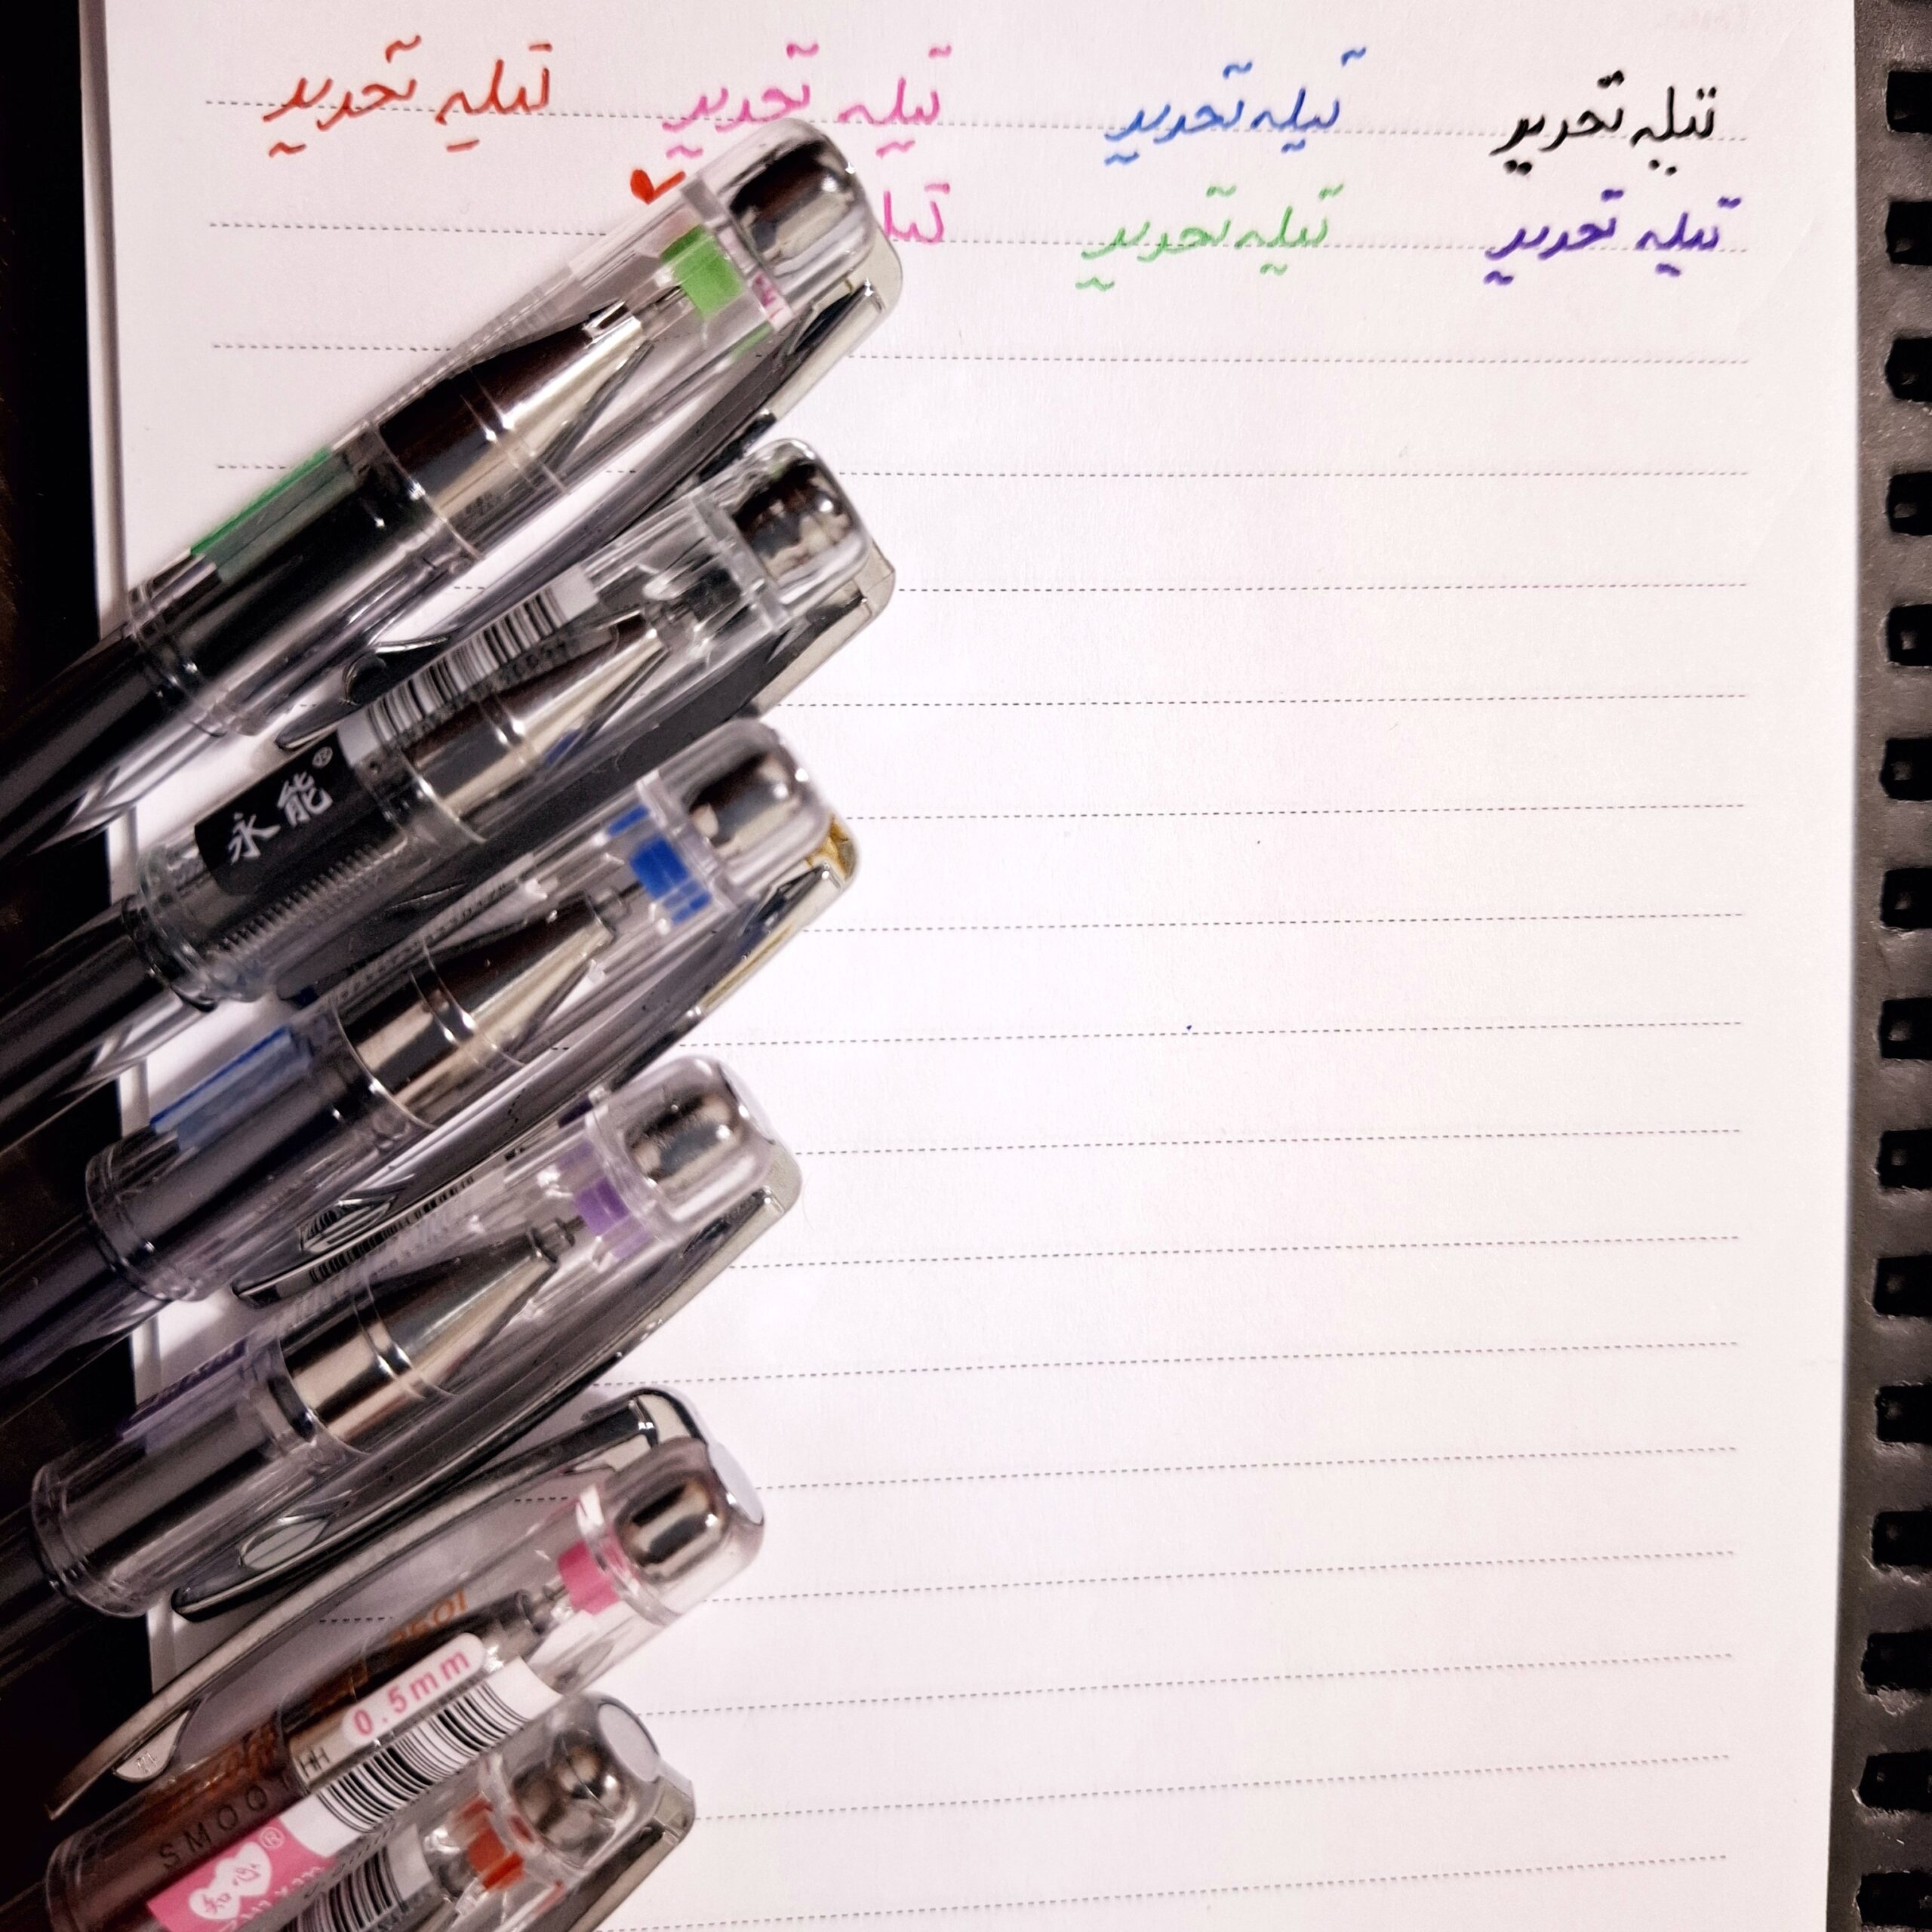 تیله تحریر تیله تحریر تیله تحریر تیله تحریر
تیله تحریر تیله تحریر
永能®
0.5mm